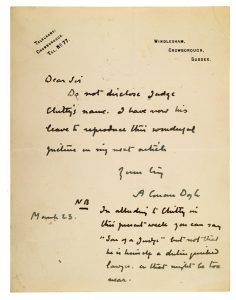 TELEGRAMS:
CROWBOROUGH.
TEL. No 77.
WINDLESHAM,
CROWBOROUGH,
SUSSEX.
Dear Sir
Do not disclose Judge
Chitty's name. I have now his
leave to reproduce this wonderful
picture in my next article
Yours truly
A Conan Doyle
March 23.
NB
In alluding to Chitty in
this present week you can say
"Son of a Judge" but not that
he is himself a distinguished
lawyer as that might be too
near.